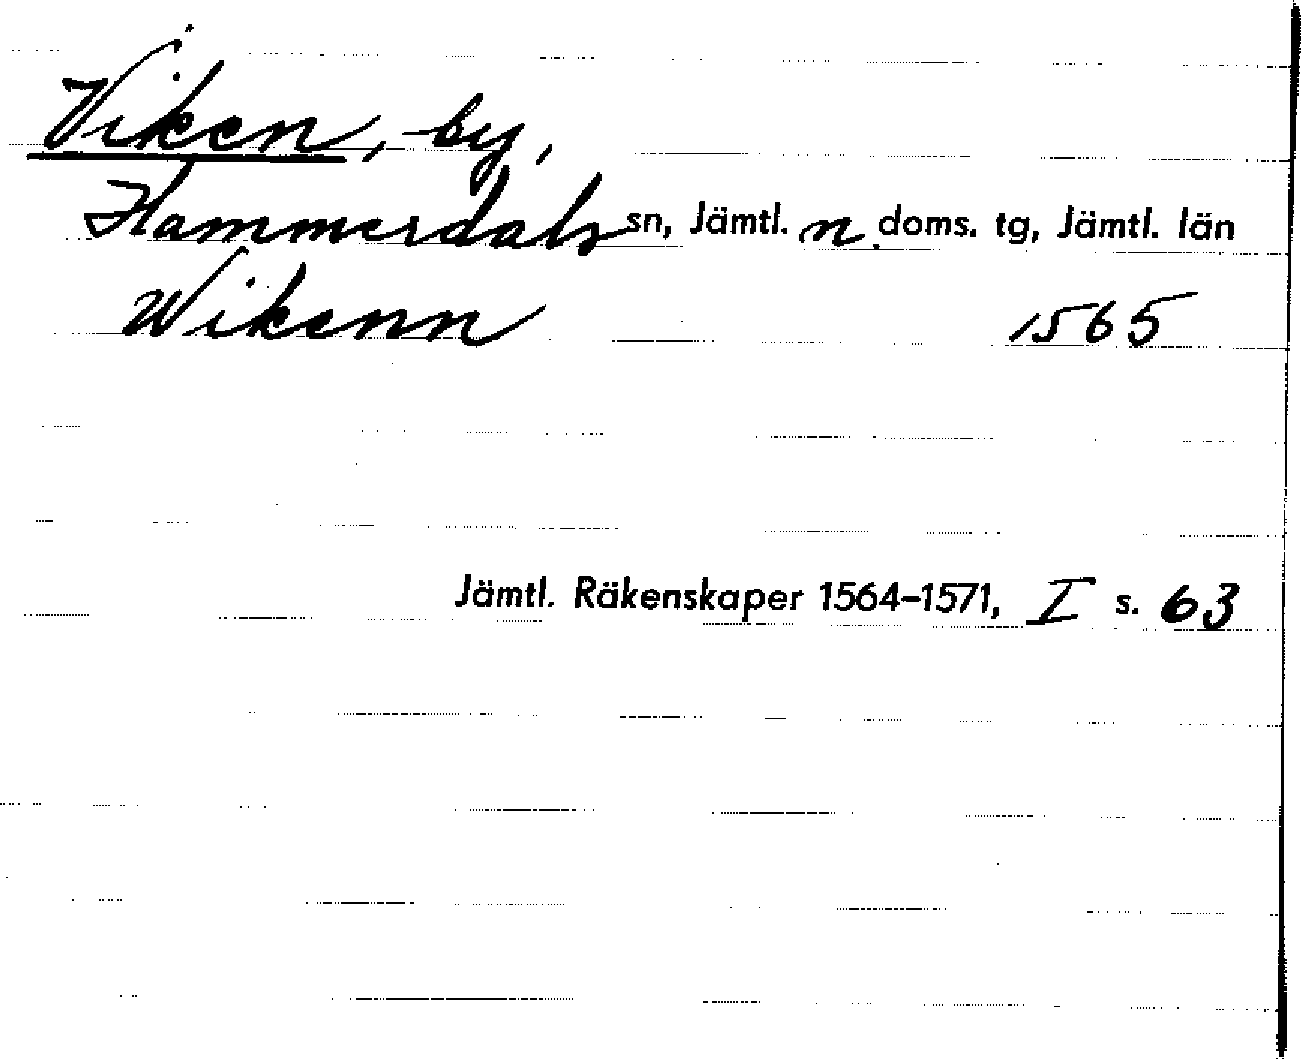 Viken, by,
Hammerdals sn, Jämtl. n. doms. tg, Jämtl. län
Wikenn 1565
Jämtl. Räkenskaper 1564-1571, I s. 63